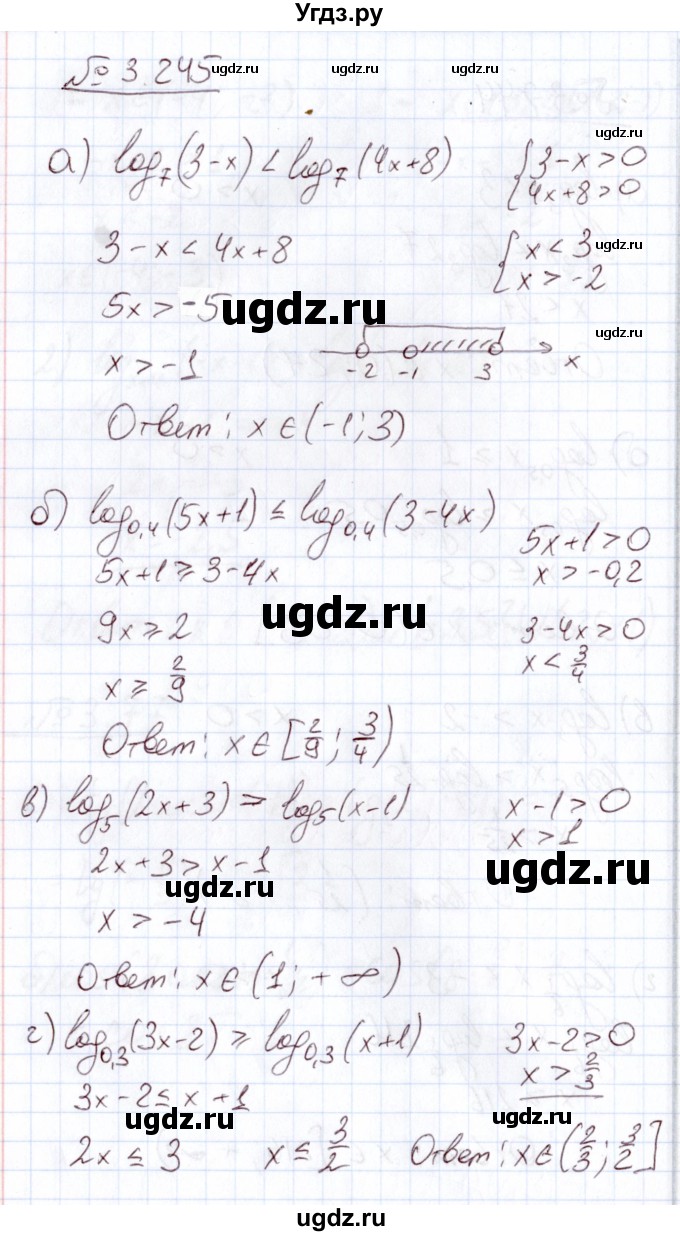 Угдз.ру
№ 3.245
ugdz.ru ugdz.ru
ugdz.ru
а) log₇(3-x) < log₇(4x+8) { 3-x>0
{ 4x+8>0
3-x < 4x+8 { x < 3
ugdz.ru
{ x > -2
5x > -5
ugdz.ru
ugdz.ru
x > -1 -2 -1 3 x
Ответ: x ∈ (-1; 3)
б) log₀,₄(5x+1) ≤ log₀,₄(3-4x) 5x+1>0
5x+1 ≥ 3-4x x > -0,2
ugdz.ru
9x ≥ 2 3-4x>0
ugdz.ru
x ≥ 2/9 x < 3/4
Ответ: x ∈ [2/9; 3/4)
в) log₅(2x+3) > log₅(x-1) x-1>0
x>1
2x+3 > x-1
ugdz.ru ugdz.ru
x > -4
Ответ: x ∈ (1; +∞)
г) log₀,₃(3x-2) ≥ log₀,₃(x+1) 3x-2>0
ugdz.ru
x > 2/3
3x-2 ≤ x+1
ugdz.ru
2x ≤ 3 x ≤ 3/2 Ответ: x ∈ (2/3; 3/2]
ugdz.ru
ugdz.ru